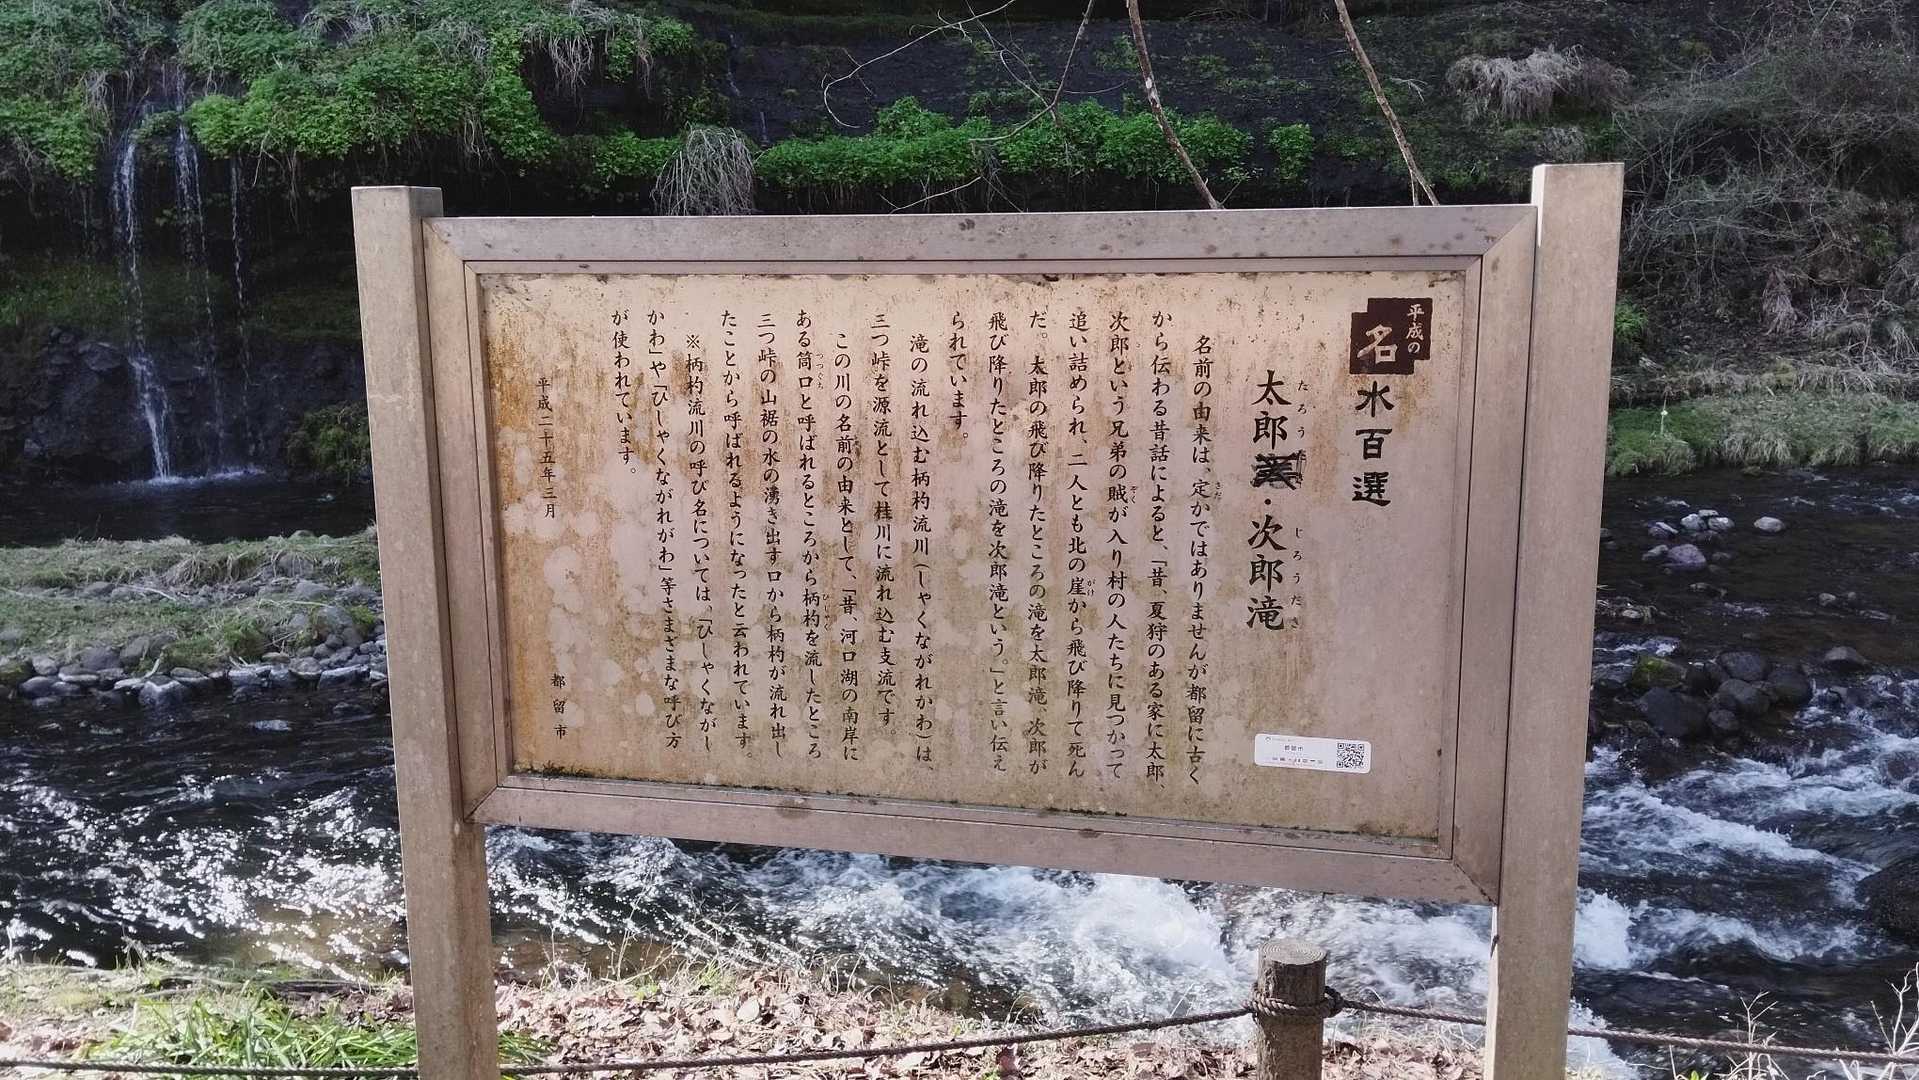 平成の
名水百選
太郎・次郎滝
たろう
じろうだき
名前の由来は、定かではありませんが都留に古く
から伝わる昔話によると、「昔、夏狩のある家に太郎、
次郎という兄弟の賊が入り村の人たちに見つかって
追い詰められ、二人とも北の崖から飛び降りて死ん
だ。太郎の飛び降りたところの滝を太郎滝、次郎が
飛び降りたところの滝を次郎滝という。」と言い伝え
られています。
滝の流れ込む柄杓流川(しゃくながれかわ)は、
三つ峠を源流として桂川に流れ込む支流です。
この川の名前の由来として、「昔、河口湖の南岸に
ある筒口と呼ばれるところから柄杓を流したところ
三つ峠の山裾の水の湧き出す口から柄杓が流れ出し
たことから呼ばれるようになったと云われています。
※柄杓流川の呼び名については、「ひしゃくながし
かわ」や「ひしゃくながれがわ」等さまざまな呼び方
が使われています。
平成二十五年三月
都留市
都留市